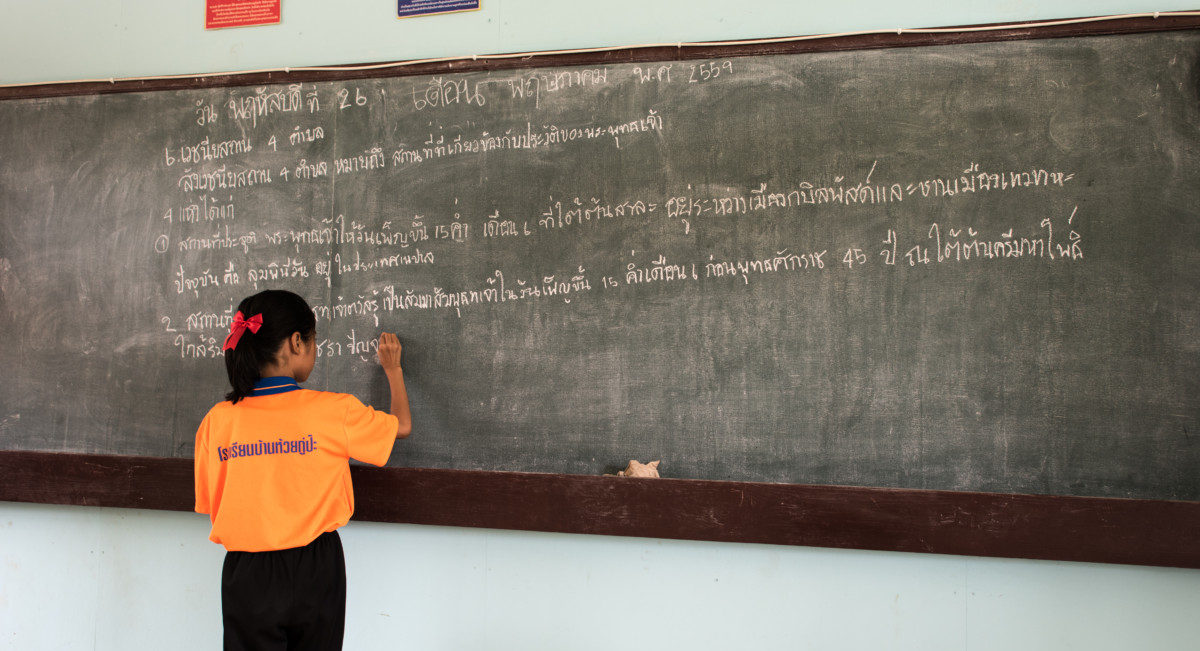 วัน พฤหัสบดี ที่ 26 เดือน พฤษภาคม พ.ศ 2559
6. เวชนียสถาน 4 ตำบล
สังเวชนียสถาน 4 ตำบล หมายถึง สถานที่ที่เกี่ยวข้องกับประวัติของพระพุทธเจ้า
4 แห่งได้แก่
① สถานที่ประสูติ พระพุทธเจ้าให้วันเพ็ญขึ้น 15 ค่ำ เดือน 6 ที่ใต้ต้นสาละ อยู่ระหว่างเมืองกบิลพัสด์และ
ปัจจุบัน คือ ลุมพินีวัน อยู่ในประเทศเนปาล
2 สถานที่ เจ้าตรัสรู้ เป็นสัมมาสัมพุทธเจ้าในวันเพ็ญขึ้น 15 ค่ำเดือน 6 ก่อนพุทธศักราช 45 ปี ณ ใต้ต้นศรีมหาโพธิ์
ใกล้ริม
โรงเรียนบ้านห้วยกู่ป๊ะ